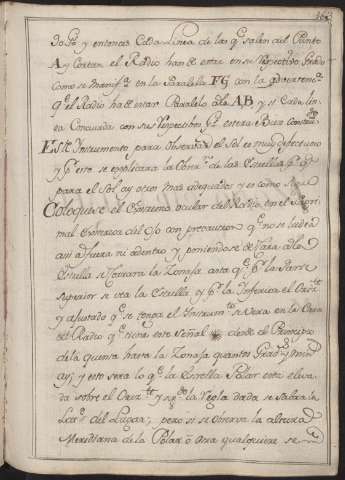 163
30 Gs. y entonces Cada Linea de las q.e salen del Punto
A y Cortan el Radio han de estar en su respectivo Grado
como se manif.ta en la Paralella FG con la advertencia
q.e el Radio ha de estar Paralelo a la A,B y si Cada lin
ea Concuerda con sus respectivos G.s estara Bien
Este Instrumento para observar el Sol es muy defectuoso
y p.r esto se explicara la Obser.n de las Estrellas p.s
para el Sol ay otros mas adequados y es como sigue
Coloquese el Extremo ocular del Radio en el
mal Exterior del Ojo con precaucion q.e no se ladea
asi a fuera ni adentro y poniendose de Cara a la
Estrella se Correra la Zonaja asta q.e p.r la Parte
superior se vea la Estrella y p.r la Inferior el Oriz.te
y ajustado q.e se tenga el Instrum.to se vera en la Cara
del Radio q.e tiene esta Señal desde el Principio
de la quenta hasta la Zonaja quantos Grad.s y min
ay; y esto sera lo q.e la Estrella Polar esta eleva
da sobre el Oriz.te y seg.n la Regla dada se sabra la
Lat.d del Lugar; pero si se observa la altura
Meridiana de la Polar ò otra qualquiera se